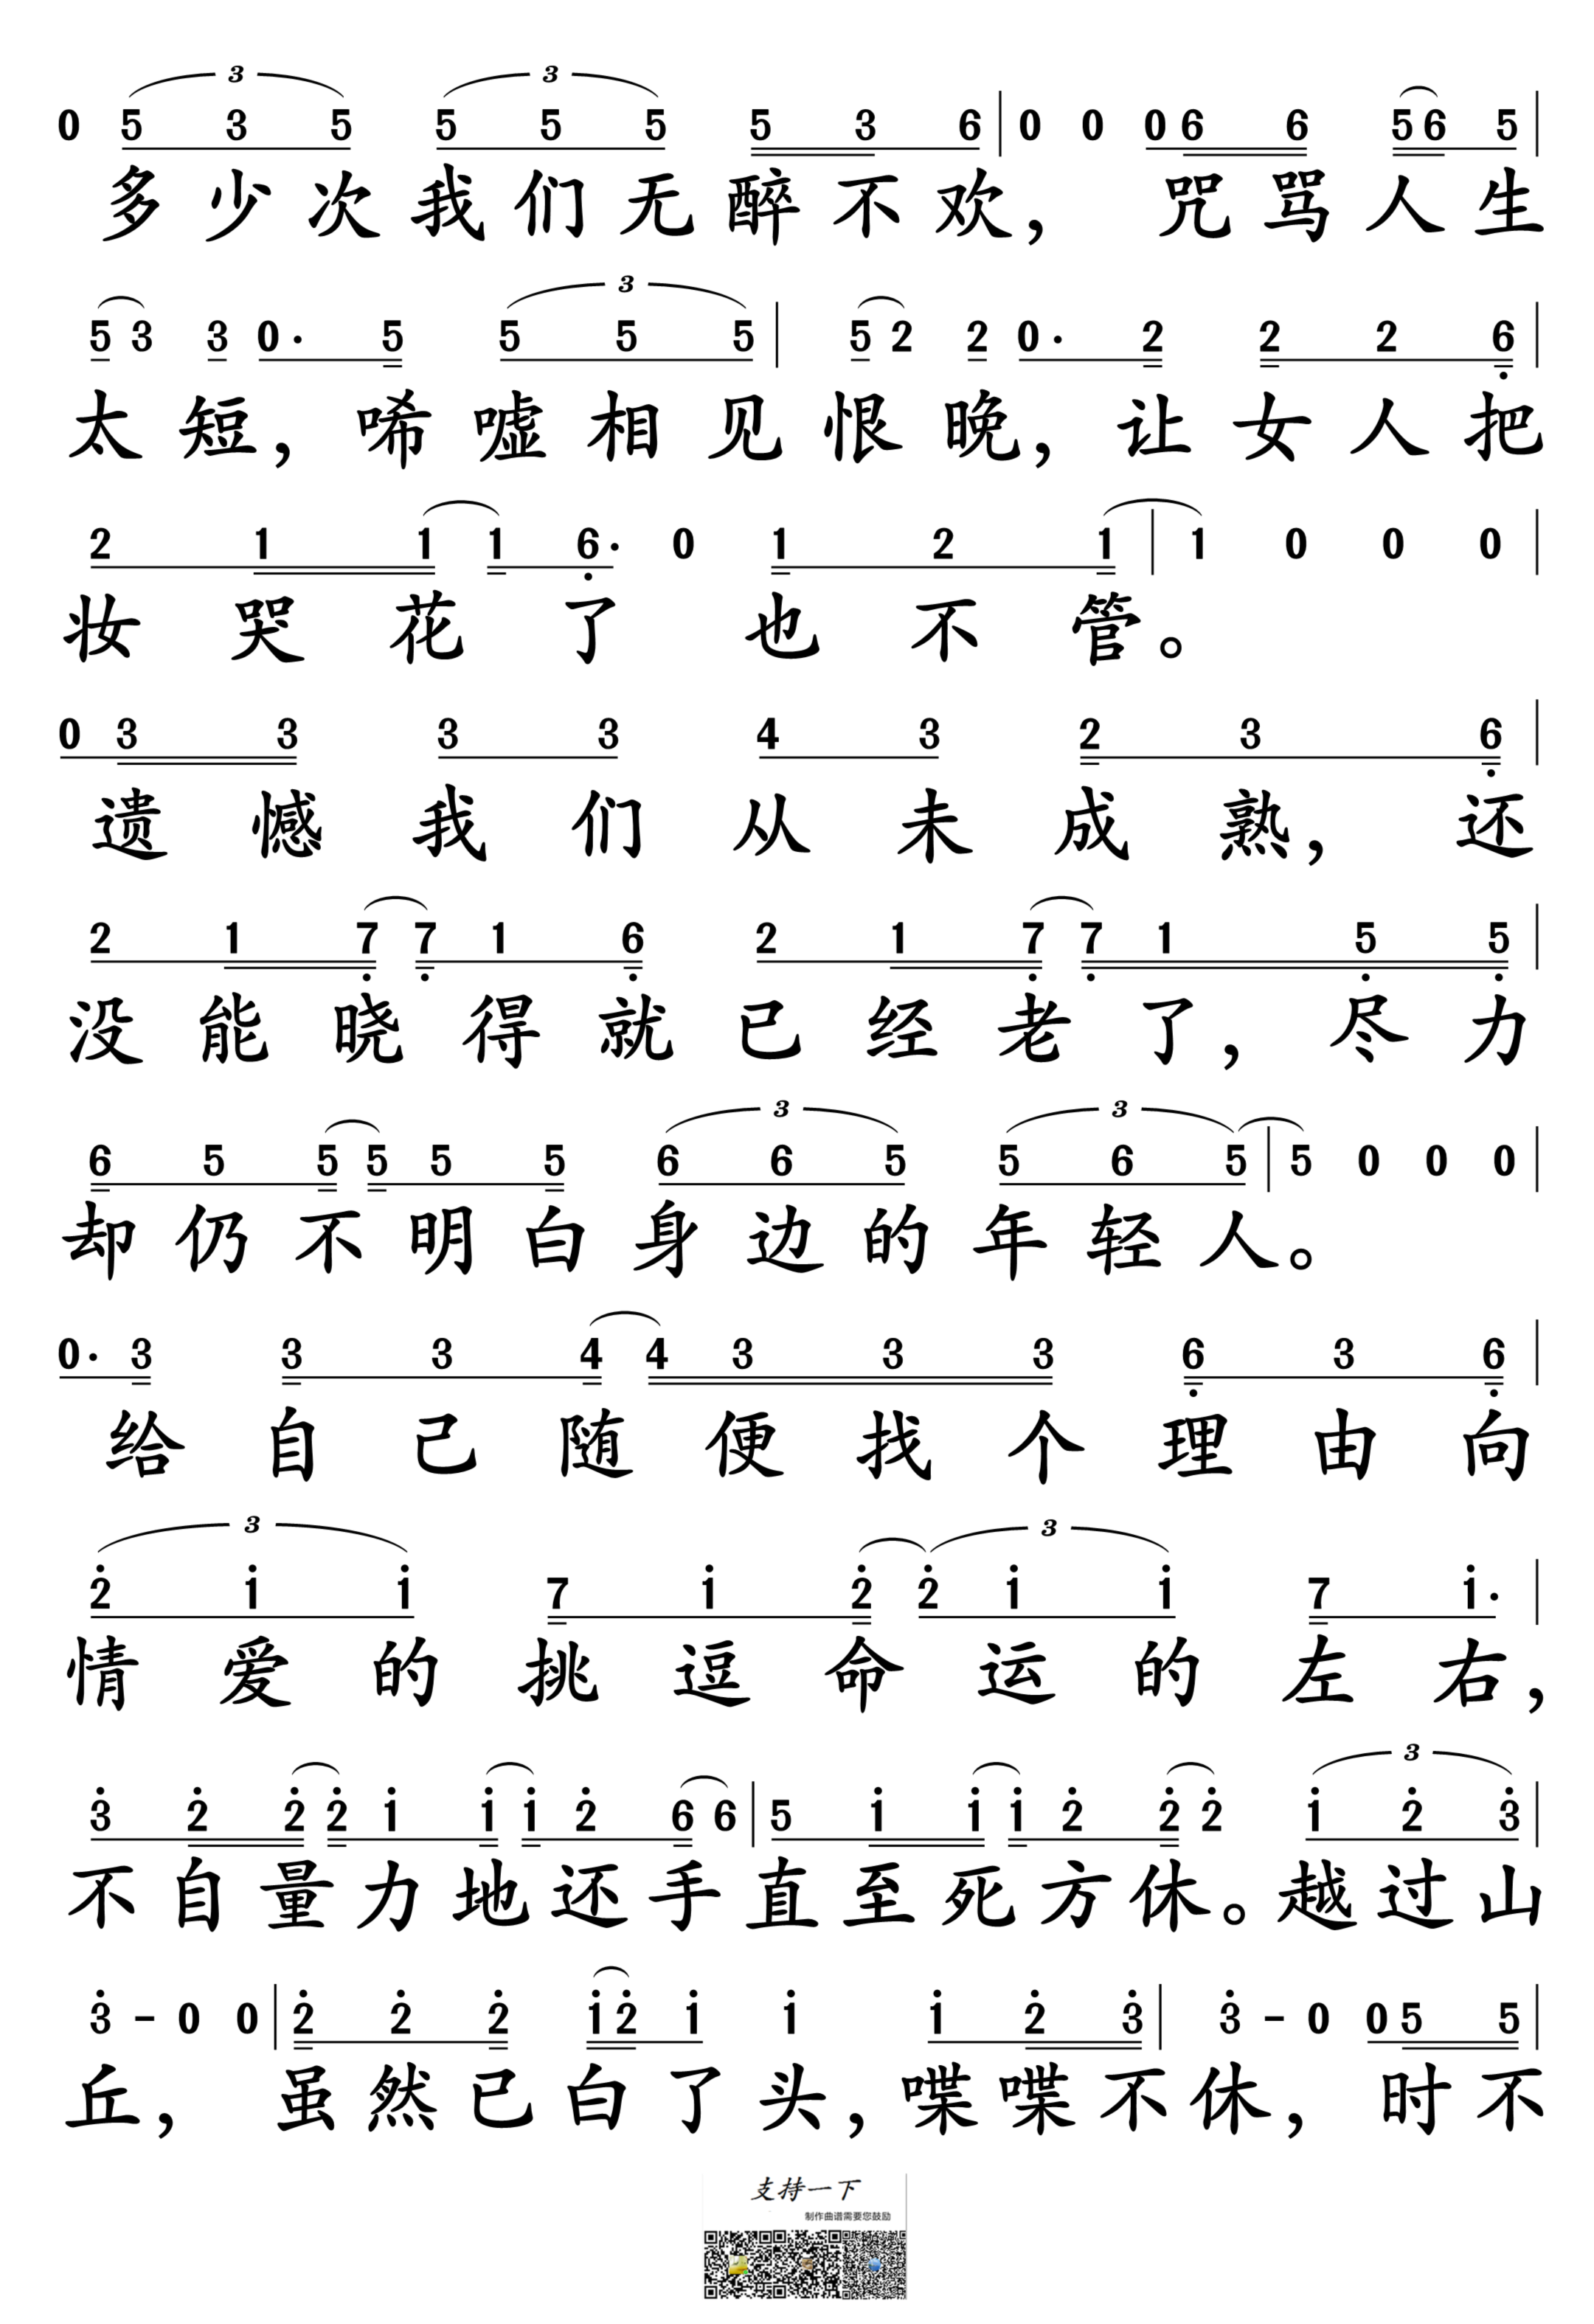 3 3
0 5 3 5 5 5 5 5 3 6 | 0 0 0 6 6 5 6 5 |
多少次我们无醉不欢， 咒骂人生
3
5 3 3 0· 5 5 5 5 | 5 2 2 0· 2 2 2 6̣ |
太短，唏嘘相见恨晚，让女人把
2 1 1 1 6̣· 0 1 2 1 | 1 0 0 0 |
妆哭花了也不管。
0 3 3 3 3 4 3 2 3 6̣ |
遗憾我们从未成熟，还
2 1 7̣ 7̣ 1 6̣ 2 1 7̣ 7̣ 1 5̣ 5̣ |
没能晓得就已经老了，尽力
3 3
6 5 5 5 5 5 6 6 5 5 6 5 | 5 0 0 0 |
却仍不明白身边的年轻人。
0· 3 3 3 4 4 3 3 3 6̣ 3 6̣ |
给自己随便找个理由向
3 3
2̇ 1̇ 1̇ 7 1̇ 2̇ 2̇ 1̇ 1̇ 7 1̇· |
情爱的挑逗命运的左右，
3
3̇ 2̇ 2̇ 2̇ 1̇ 1̇ 1̇ 2̇ 6 6 | 5 1̇ 1̇ 1̇ 2̇ 2̇ 2̇ 1̇ 2̇ 3̇ |
不自量力地还手直至死方休。越过山
3̇ - 0 0 | 2̇ 2̇ 2̇ 1̇ 2̇ 1̇ 1̇ 1̇ 2̇ 3̇ | 3̇ - 0 0 5 5 |
丘， 虽然已白了头，喋喋不休， 时不
支持一下
制作曲谱需要您鼓励